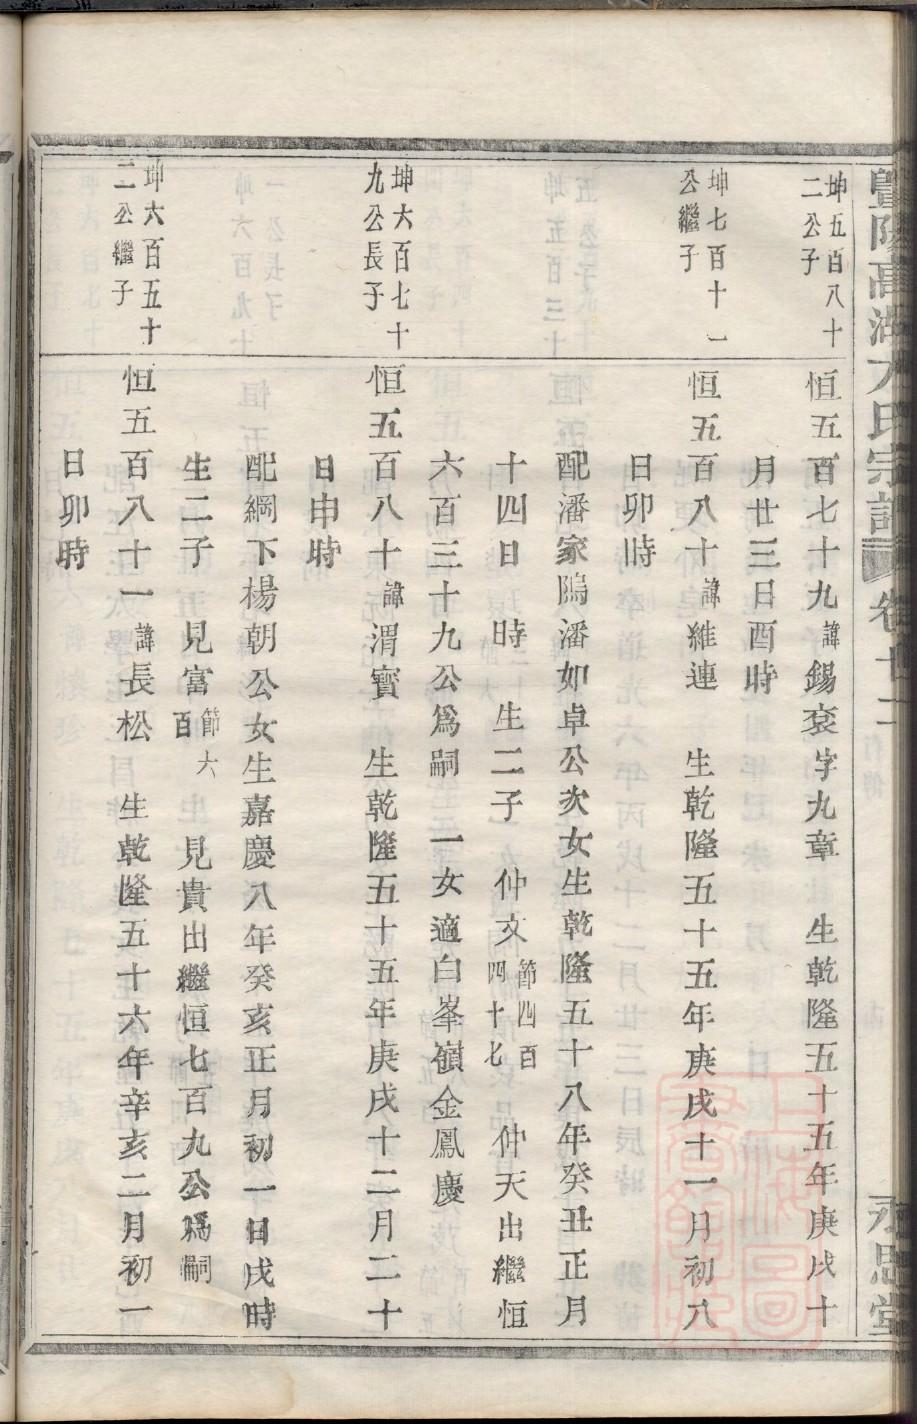 暨陽高湖方氏宗譜 卷廿二 永思堂
坤五百八十
二公子
恒五百七十九諱錫衮字九章 生乾隆五十五年庚戌十
月廿三日酉時
坤七百十一
公繼子
恒五百八十諱維連 生乾隆五十五年庚戌十一月初八
日卯時
配潘家隖潘如卓公次女生乾隆五十八年癸丑正月
十四日 時 生二子 仲文節四百四十七 仲天出繼恒
六百三十九公爲嗣 一女適白峯嶺金鳳慶
坤六百七十
九公長子
恒五百八十諱渭寳 生乾隆五十五年庚戌十二月二十
日申時
配綱下楊朝公女生嘉慶八年癸亥正月初一日戌時
生二子 見富節六百 見貴出繼恒七百九公爲嗣
坤六百五十
二公繼子
恒五百八十一諱長松 生乾隆五十六年辛亥二月初一
日卯時